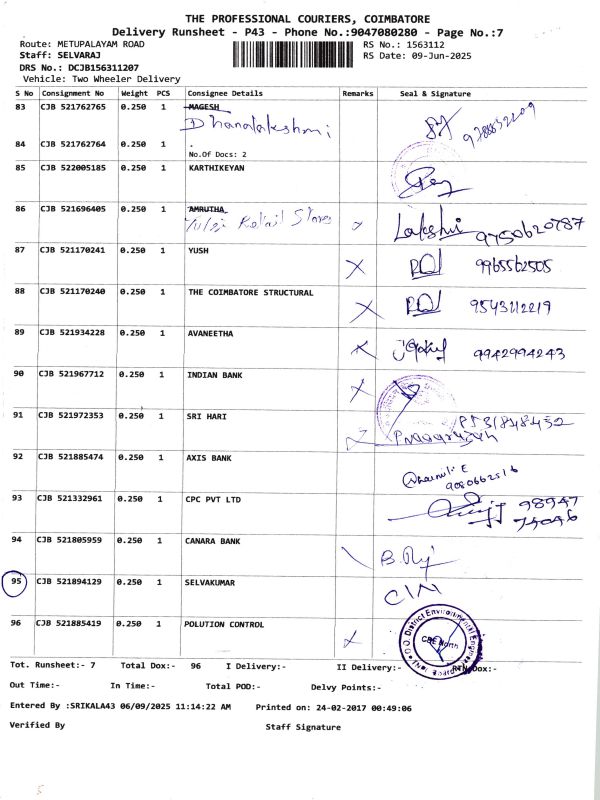 THE PROFESSIONAL COURIERS, COIMBATORE
Delivery Runsheet - P43 - Phone No.:9047080280 - Page No.:7
Route: METUPALAYAM ROAD RS No.: 1563112
Staff: SELVARAJ RS Date: 09-Jun-2025
DRS No.: DCJB156311207
Vehicle: Two Wheeler Delivery
S No Consignment No Weight PCS Consignee Details Remarks Seal & Signature
83 CJB 521762765 0.250 1 MAGESH
Dhanalakshmi
84 CJB 521762764 0.250 1 .
No.Of Docs: 2
85 CJB 522005185 0.250 1 KARTHIKEYAN
86 CJB 521696405 0.250 1 AMRUTHA
Tulsi Retail Stores x Lakshmi 9750620787
87 CJB 521170241 0.250 1 YUSH X 9965562505
88 CJB 521170240 0.250 1 THE COIMBATORE STRUCTURAL X
89 CJB 521934228 0.250 1 AVANEETHA X 9942994243
90 CJB 521967712 0.250 1 INDIAN BANK X
91 CJB 521972353 0.250 1 SRI HARI
92 CJB 521885474 0.250 1 AXIS BANK
9080662516
93 CJB 521332961 0.250 1 CPC PVT LTD 98947
74096
94 CJB 521805959 0.250 1 CANARA BANK \
95 CJB 521894129 0.250 1 SELVAKUMAR
96 CJB 521885419 0.250 1 POLUTION CONTROL x
O/O. District Environmental Engineer
CBE North
Tot. Runsheet:- 7 Total Dox:- 96 I Delivery:- II Delivery:- RTN Dox:-
Out Time:- In Time:- Total POD:- Delvy Points:-
Entered By :SRIKALA43 06/09/2025 11:14:22 AM Printed on: 24-02-2017 00:49:06
Verified By Staff Signature
5